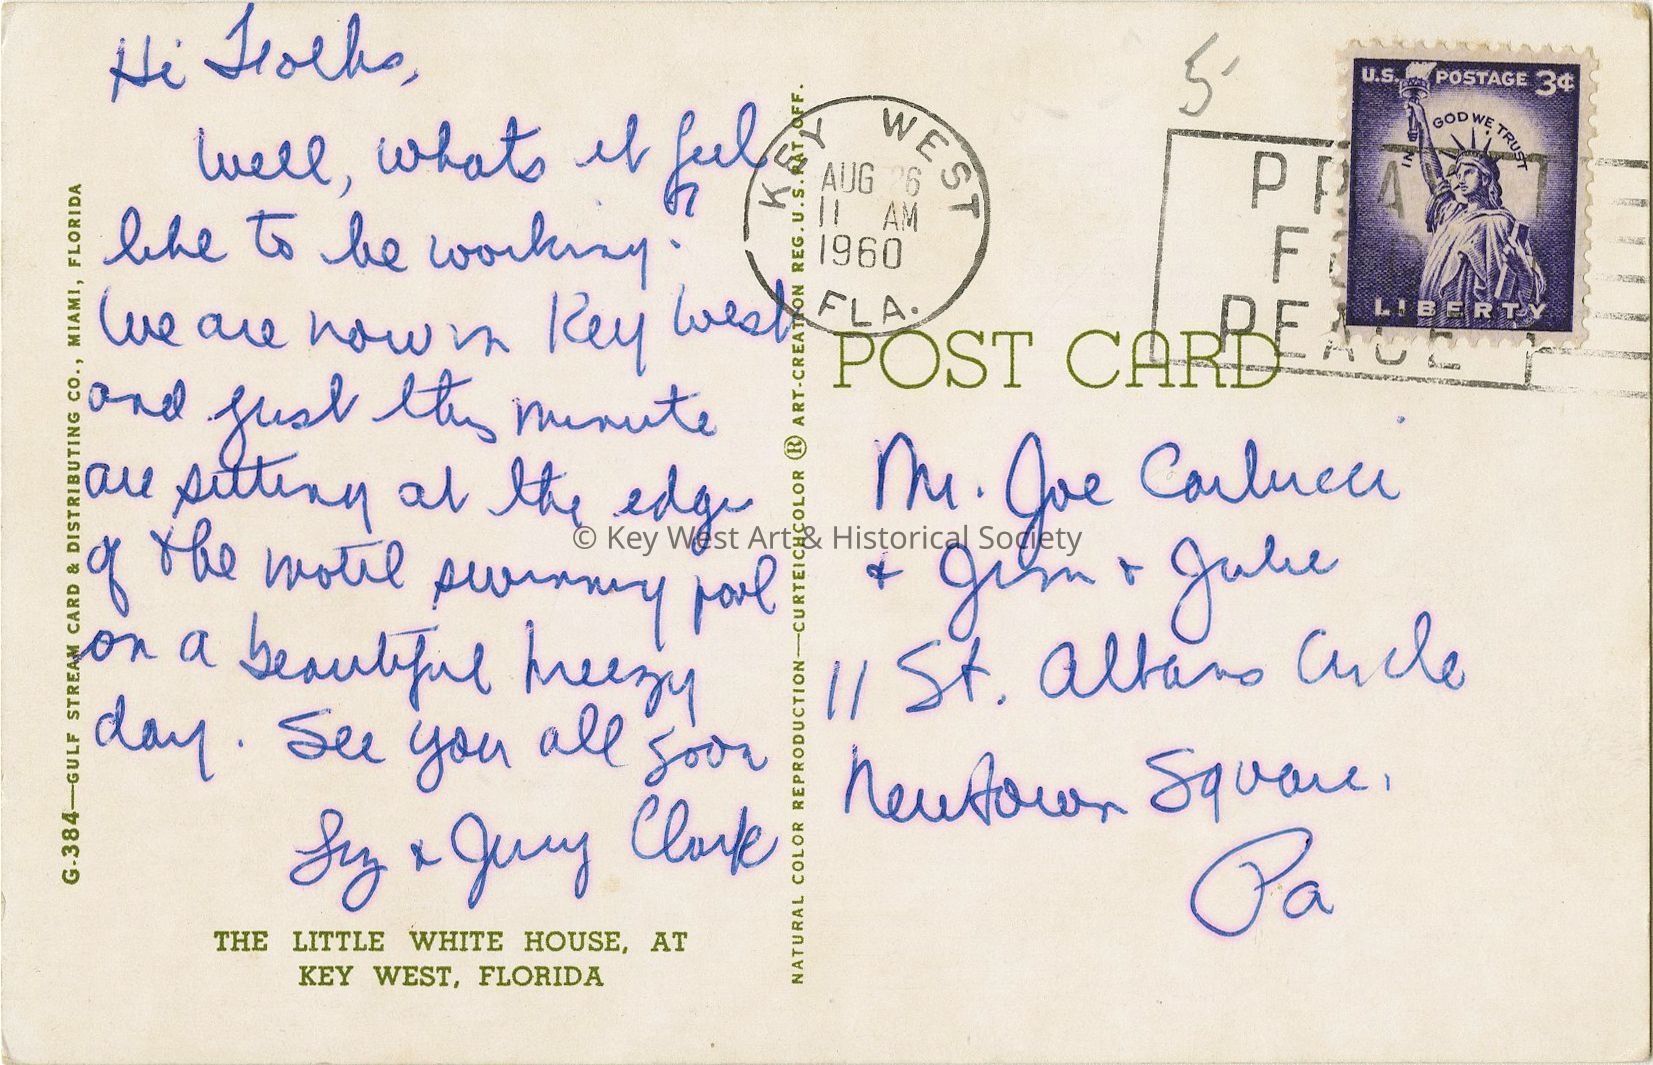 Hi Folks,
Well, whats it feel
like to be working.
We are now in Key West
and just this minute
are sitting at the edge
of the motel swimming pool
on a beautiful breezy
day. See you all soon
Liz & Jerry Clark
THE LITTLE WHITE HOUSE, AT
KEY WEST, FLORIDA
G-384—GULF STREAM CARD & DISTRIBUTING CO., MIAMI, FLORIDA
NATURAL COLOR REPRODUCTION—CURTEICHCOLOR ® ART-CREATION REG. U.S. PAT. OFF.
KEY WEST
AUG 26
11 AM
1960
FLA.
5
PRAY
FOR
PEACE
U.S. POSTAGE 3¢
IN GOD WE TRUST
LIBERTY
POST CARD
Mr. Joe Carlucci
& Jim & Julie
11 St. Albans Circle
Newtown Square,
Pa
© Key West Art & Historical Society